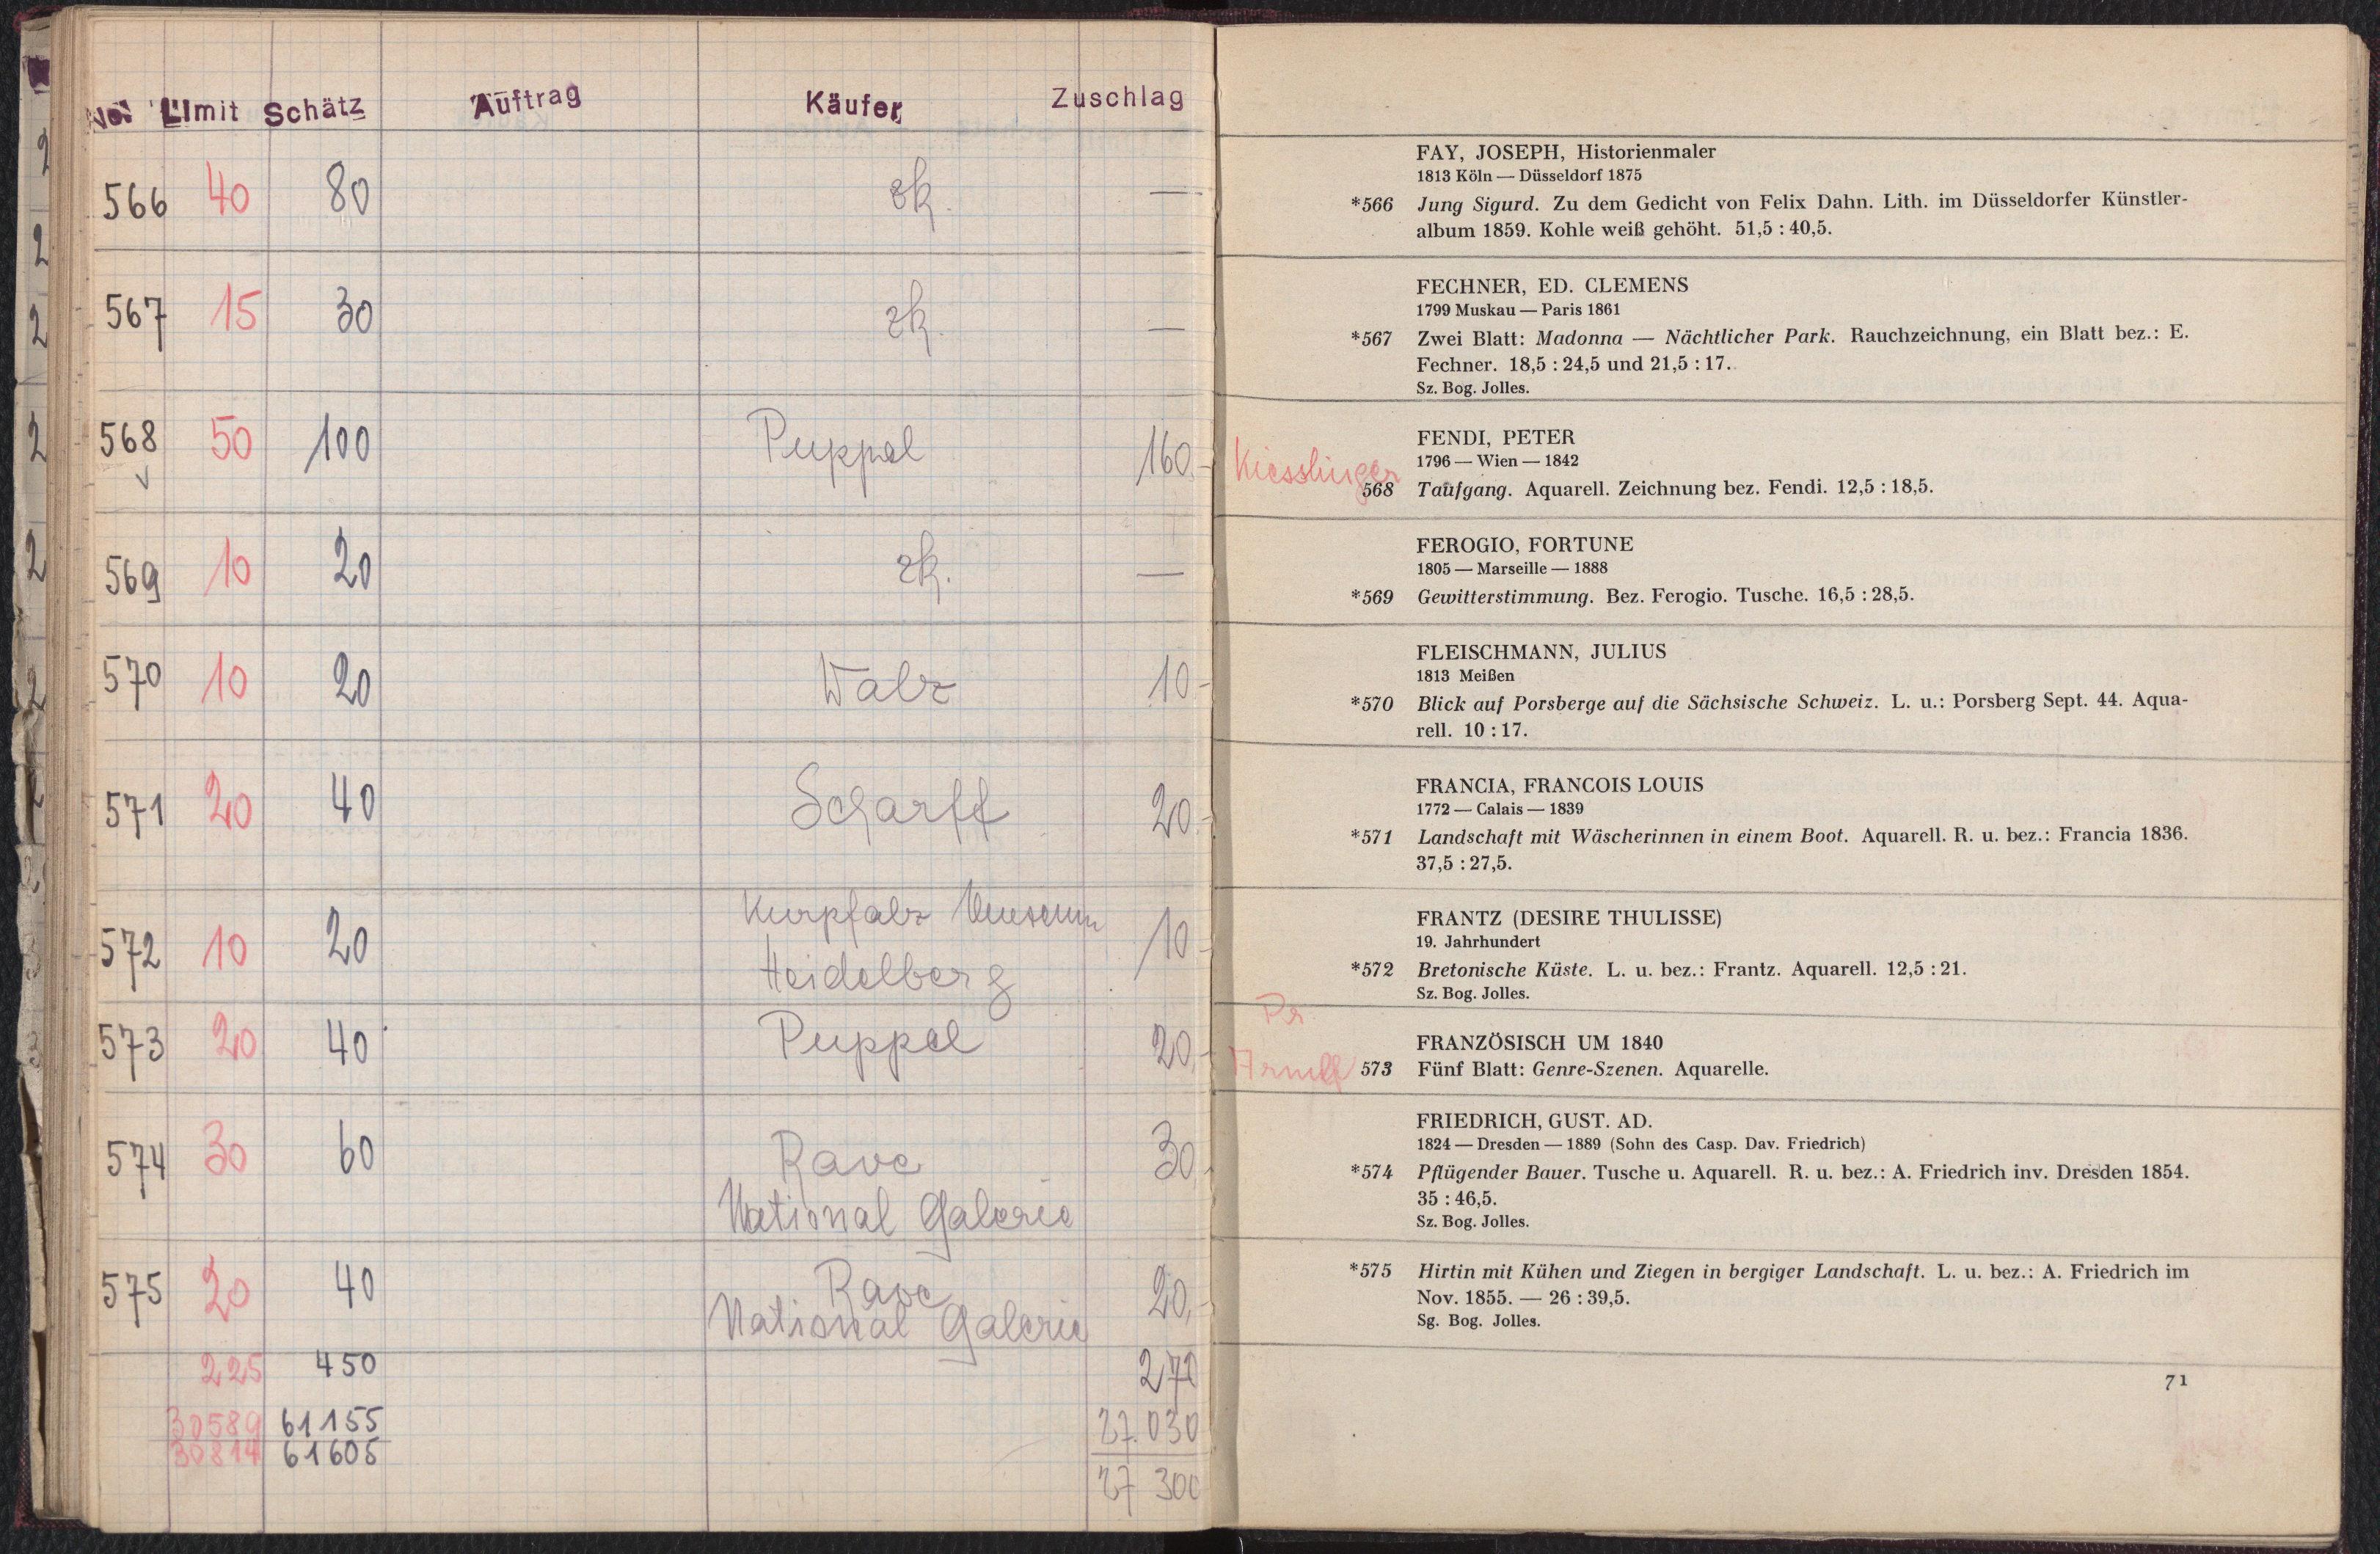 No. Limit Schätz Auftrag Käufer Zuschlag
566 40 80 zk. —
567 15 30 zk. —
568 50 100 Puppel 160,-
569 10 20 zk. —
570 10 20 Walz 10-
571 20 40 Scharff 20,-
572 10 20 Kurpfalz Museum 10-
Heidelberg
573 20 40 Puppel 20,-
574 30 60 Rave 30,
National Galerie
575 20 40 Rave 20,-
National Galerie
225 450 270
30589 61155 27.030
30814 61605 27 300
FAY, JOSEPH, Historienmaler
1813 Köln — Düsseldorf 1875
*566 Jung Sigurd. Zu dem Gedicht von Felix Dahn. Lith. im Düsseldorfer Künstler-
album 1859. Kohle weiß gehöht. 51,5 : 40,5.
FECHNER, ED. CLEMENS
1799 Muskau — Paris 1861
*567 Zwei Blatt: Madonna — Nächtlicher Park. Rauchzeichnung, ein Blatt bez.: E.
Fechner. 18,5 : 24,5 und 21,5 : 17.
Sz. Bog. Jolles.
FENDI, PETER
Kiesslinger
1796 — Wien — 1842
568 Taufgang. Aquarell. Zeichnung bez. Fendi. 12,5 : 18,5.
FEROGIO, FORTUNE
1805 — Marseille — 1888
*569 Gewitterstimmung. Bez. Ferogio. Tusche. 16,5 : 28,5.
FLEISCHMANN, JULIUS
1813 Meißen
*570 Blick auf Porsberge auf die Sächsische Schweiz. L. u.: Porsberg Sept. 44. Aqua-
rell. 10 : 17.
FRANCIA, FRANCOIS LOUIS
1772 — Calais — 1839
*571 Landschaft mit Wäscherinnen in einem Boot. Aquarell. R. u. bez.: Francia 1836.
37,5 : 27,5.
FRANTZ (DESIRE THULISSE)
19. Jahrhundert
*572 Bretonische Küste. L. u. bez.: Frantz. Aquarell. 12,5 : 21.
Sz. Bog. Jolles.
FRANZÖSISCH UM 1840
573 Fünf Blatt: Genre-Szenen. Aquarelle.
FRIEDRICH, GUST. AD.
1824 — Dresden — 1889 (Sohn des Casp. Dav. Friedrich)
*574 Pflügender Bauer. Tusche u. Aquarell. R. u. bez.: A. Friedrich inv. Dresden 1854.
35 : 46,5.
Sz. Bog. Jolles.
*575 Hirtin mit Kühen und Ziegen in bergiger Landschaft. L. u. bez.: A. Friedrich im
Nov. 1855. — 26 : 39,5.
Sg. Bog. Jolles.
71